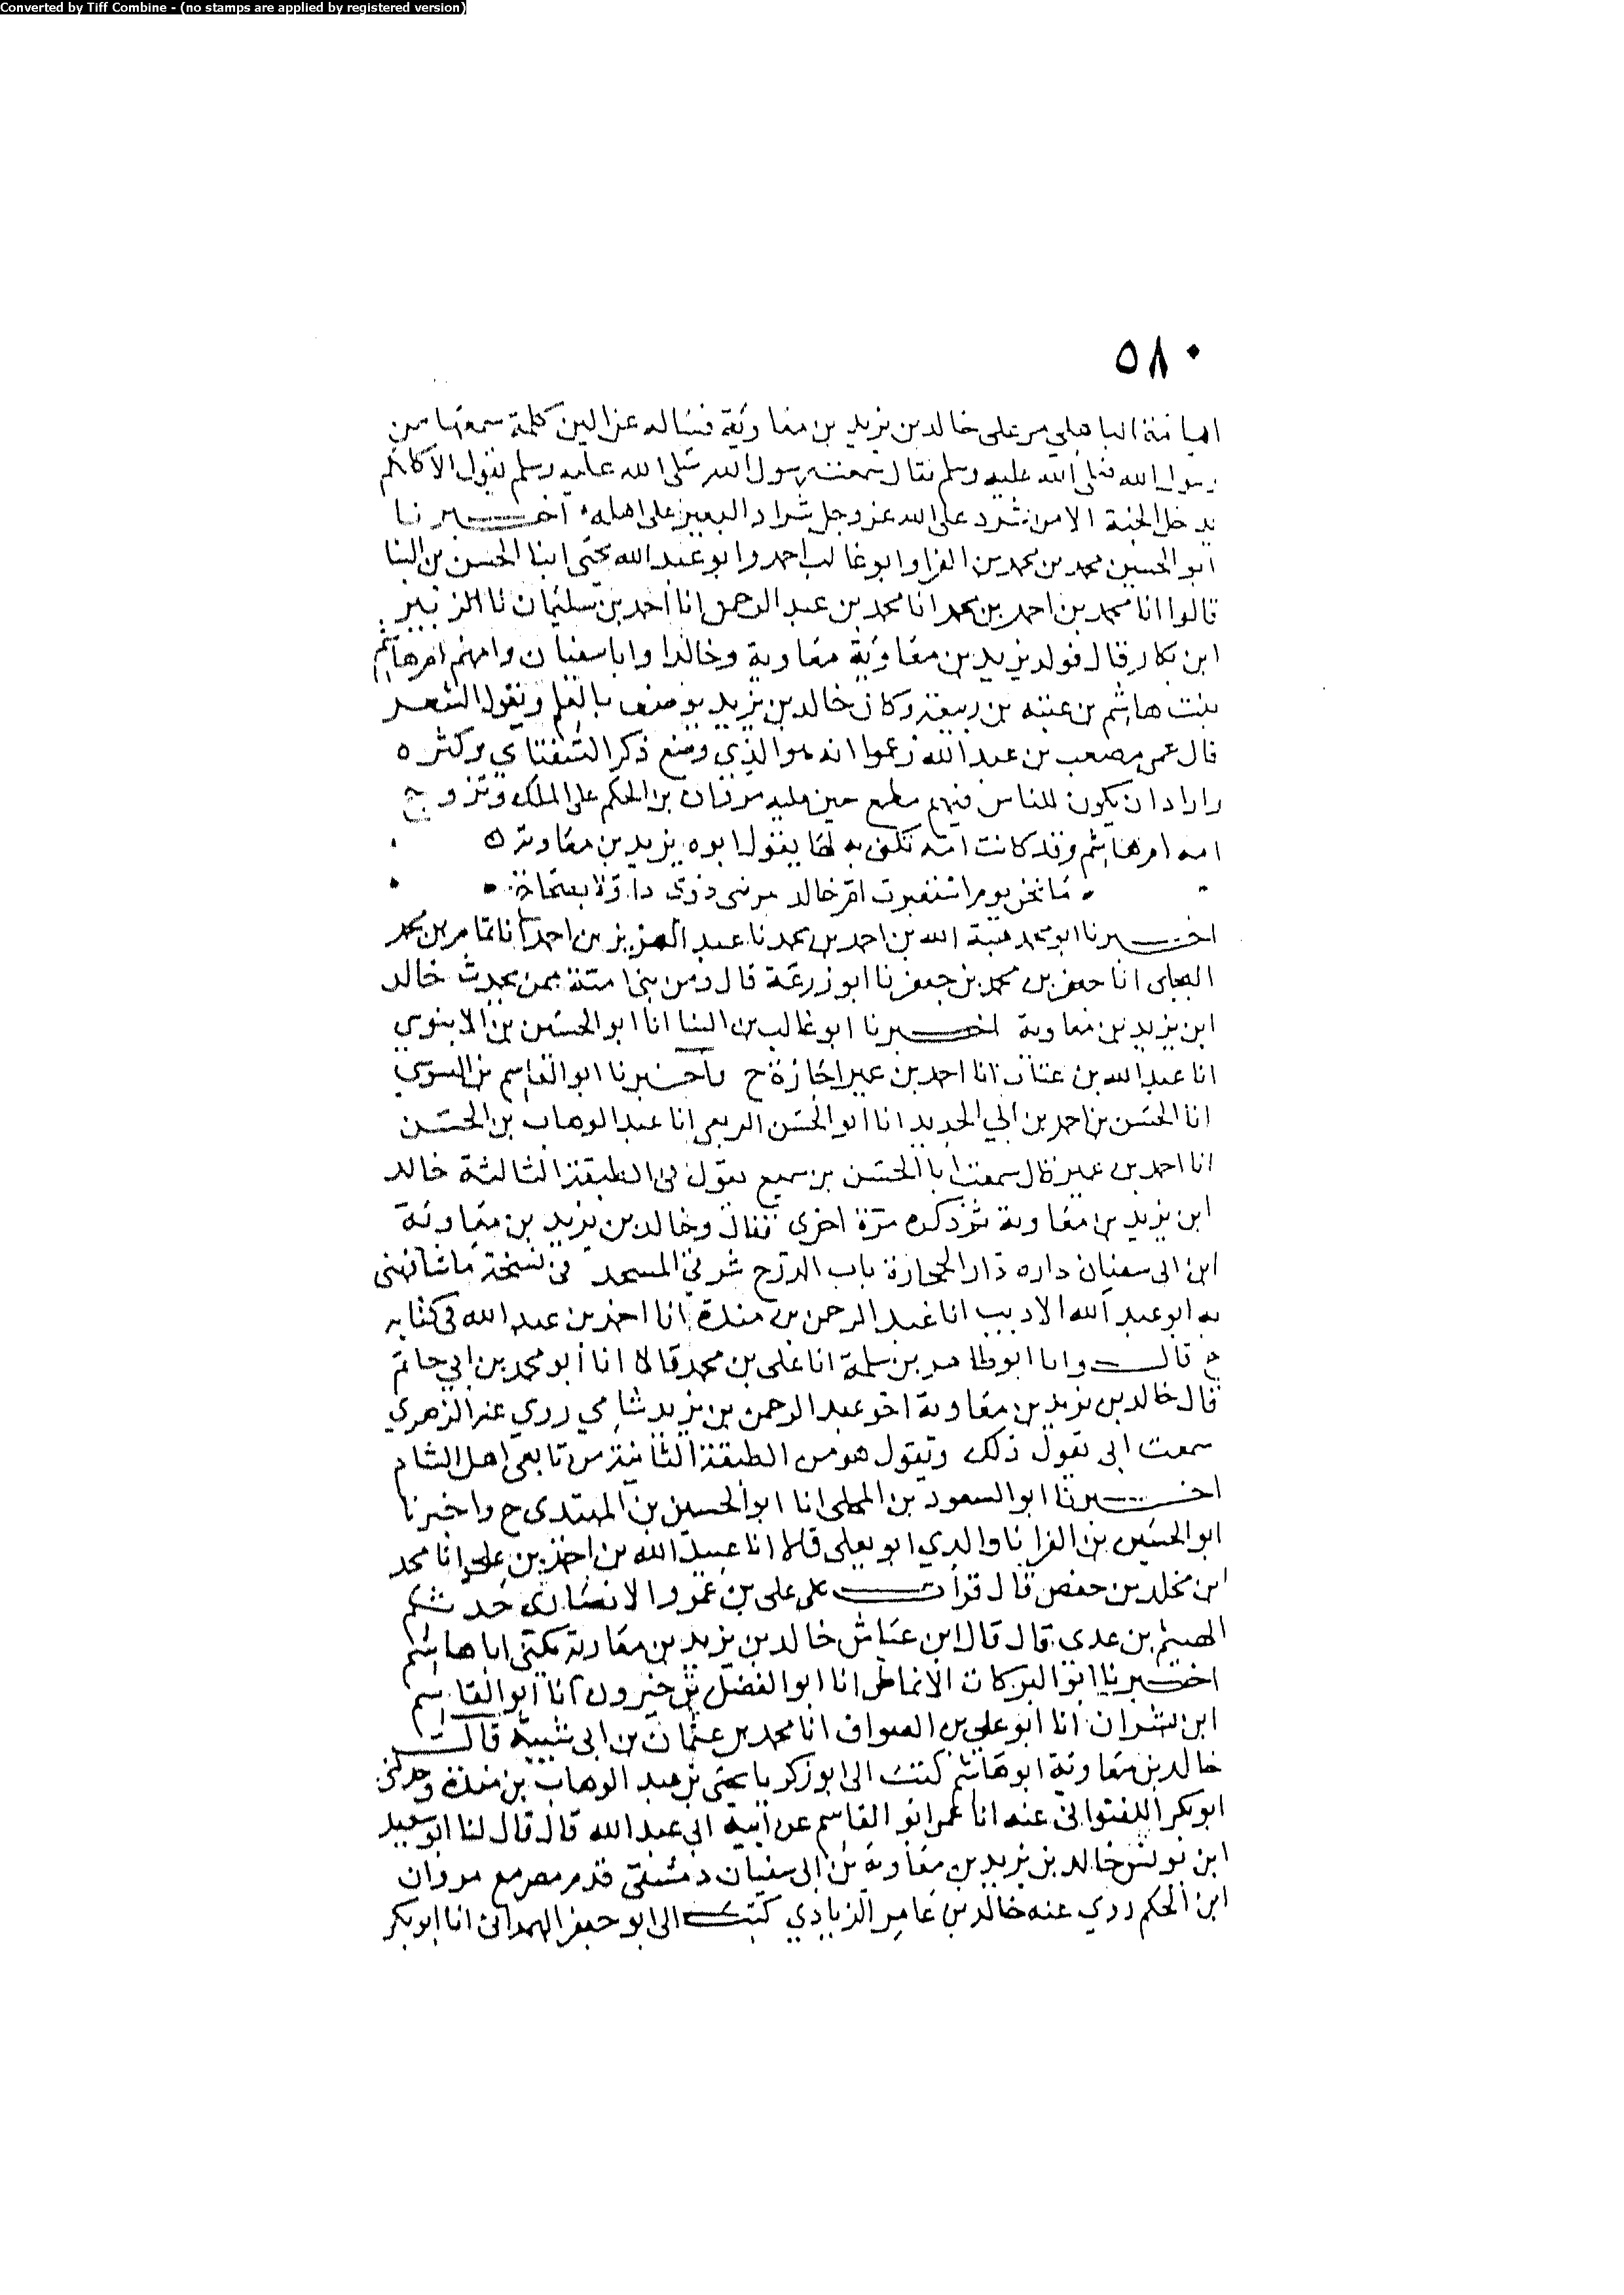 Converted by Tiff Combine - (no stamps are applied by registered version)
٥٨٠
امامة الباهلي مر على خالد بن يزيد بن معاوية فساله عن الين كلمة سمعها من
رسول الله صلى الله عليه وسلم فقال سمعت رسول الله صلى الله عليه وسلم يقول الا كلكم
يدخل الجنة الا من شرد على الله عز وجل شراد البعير على اهله اخبرنا
ابو الحسين محمد بن محمد بن الفرا وابو غالب احمد وابو عبد الله يحيى ابنا الحسن بن البنا
قالوا انا محمد بن احمد بن محمد انا محمد بن عبد الرحمن انا احمد بن سليمان نا الزبير
ابن بكار قال فولد يزيد بن معاوية معاوية وخالدا وابا سفيان وامهم ام هاشم
بنت هاشم بن عتبه بن ربيعة وكان خالد بن يزيد يوصف بالعلم ويقول الشعر
قال عمى مصعب بن عبد الله زعموا انه هو الذي وضع ذكر السفياني وكثره
واراد ان يكون للناس فيهم مطمع حين غلبه مروان بن الحكم على الملك وتزوج
امه ام هاشم وقد كانت امه تكنى به لها يقول ابوه يزيد بن معاوية
ما نحن يوم استعبرت ام خالد بمرضى ذوى داء ولا بصحاح
اخبرنا ابو محمد هبة الله بن احمد بن محمد نا عبد العزيز بن احمد انا تمام بن محمد
البجلى انا جعفر بن محمد بن جعفر نا ابو زرعة قال ومن بنى امية ممن يحدث خالد
ابن يزيد بن معاوية اخبرنا ابو غالب بن البنا انا ابو الحسين بن الابنوسي
انا عبد الله بن عتاب انا احمد بن عمير اجازة ح واخبرنا ابو القاسم بن السوسي
انا الحسن بن احمد بن ابي الحديد انا ابو الحسن الربعى انا عبد الوهاب بن الحسن
انا احمد بن عمير قال سمعت ابا الحسن بن سميع يقول فى الطبقة الثالثة خالد
ابن يزيد بن معاوية ثم ذكره مرة اخرى فقال وخالد بن يزيد بن معاوية
ابن ابى سفيان داره دار الحجارة باب الدرج شرقي المسجد فى نسخة ما شافهنى
به ابو عبد الله الاديب انا عبد الرحمن بن مندة انا احمد بن عبد الله فى كتابه
ح قال وانا ابو طاهر بن سلمة انا على بن محمد قالا انا ابو محمد بن ابي حاتم
قال خالد بن يزيد بن معاوية اخو عبد الرحمن بن يزيد شامي روي عنه الزهري
سمعت ابى يقول ذلك ويقول هو من الطبقة الثانية من تابعى اهل الشام
اخبرنا ابو السعود بن المجلى انا ابو الحسين بن المهتدى ح واخبرنا
ابو الحسين بن الفرا نا والدي ابو يعلى قالا انا عبيد الله بن احمد بن على انا محمد
ابن مخلد بن حفص قال قرأت على على بن عمرو الانصارى حدثكم
الهيثم بن عدى قال قال ابن عياش خالد بن يزيد بن معاوية يكنى ابا هاشم
اخبرنا ابو البركات الانماطى انا ابو الفضل بن خيرون انا ابو القاسم
ابن بشران انا ابو على بن الصواف انا محمد بن عثمان بن ابى شيبة قال
خالد بن معاوية ابو هاشم كتب الى ابو زكريا يحيى بن عبد الوهاب بن مندة وحدثنى
ابو بكر اللفتوانى عنه انا عمى ابو القاسم عن ابيه ابى عبد الله قال قال لنا ابو سعيد
ابن يونس خالد بن يزيد بن معاوية بن ابى سفيان دمشقى قدم مصر مع مروان
ابن الحكم روي عنه خالد بن عامر الزبادي كتب الى ابو جعفر الهمدانى انا ابو بكر